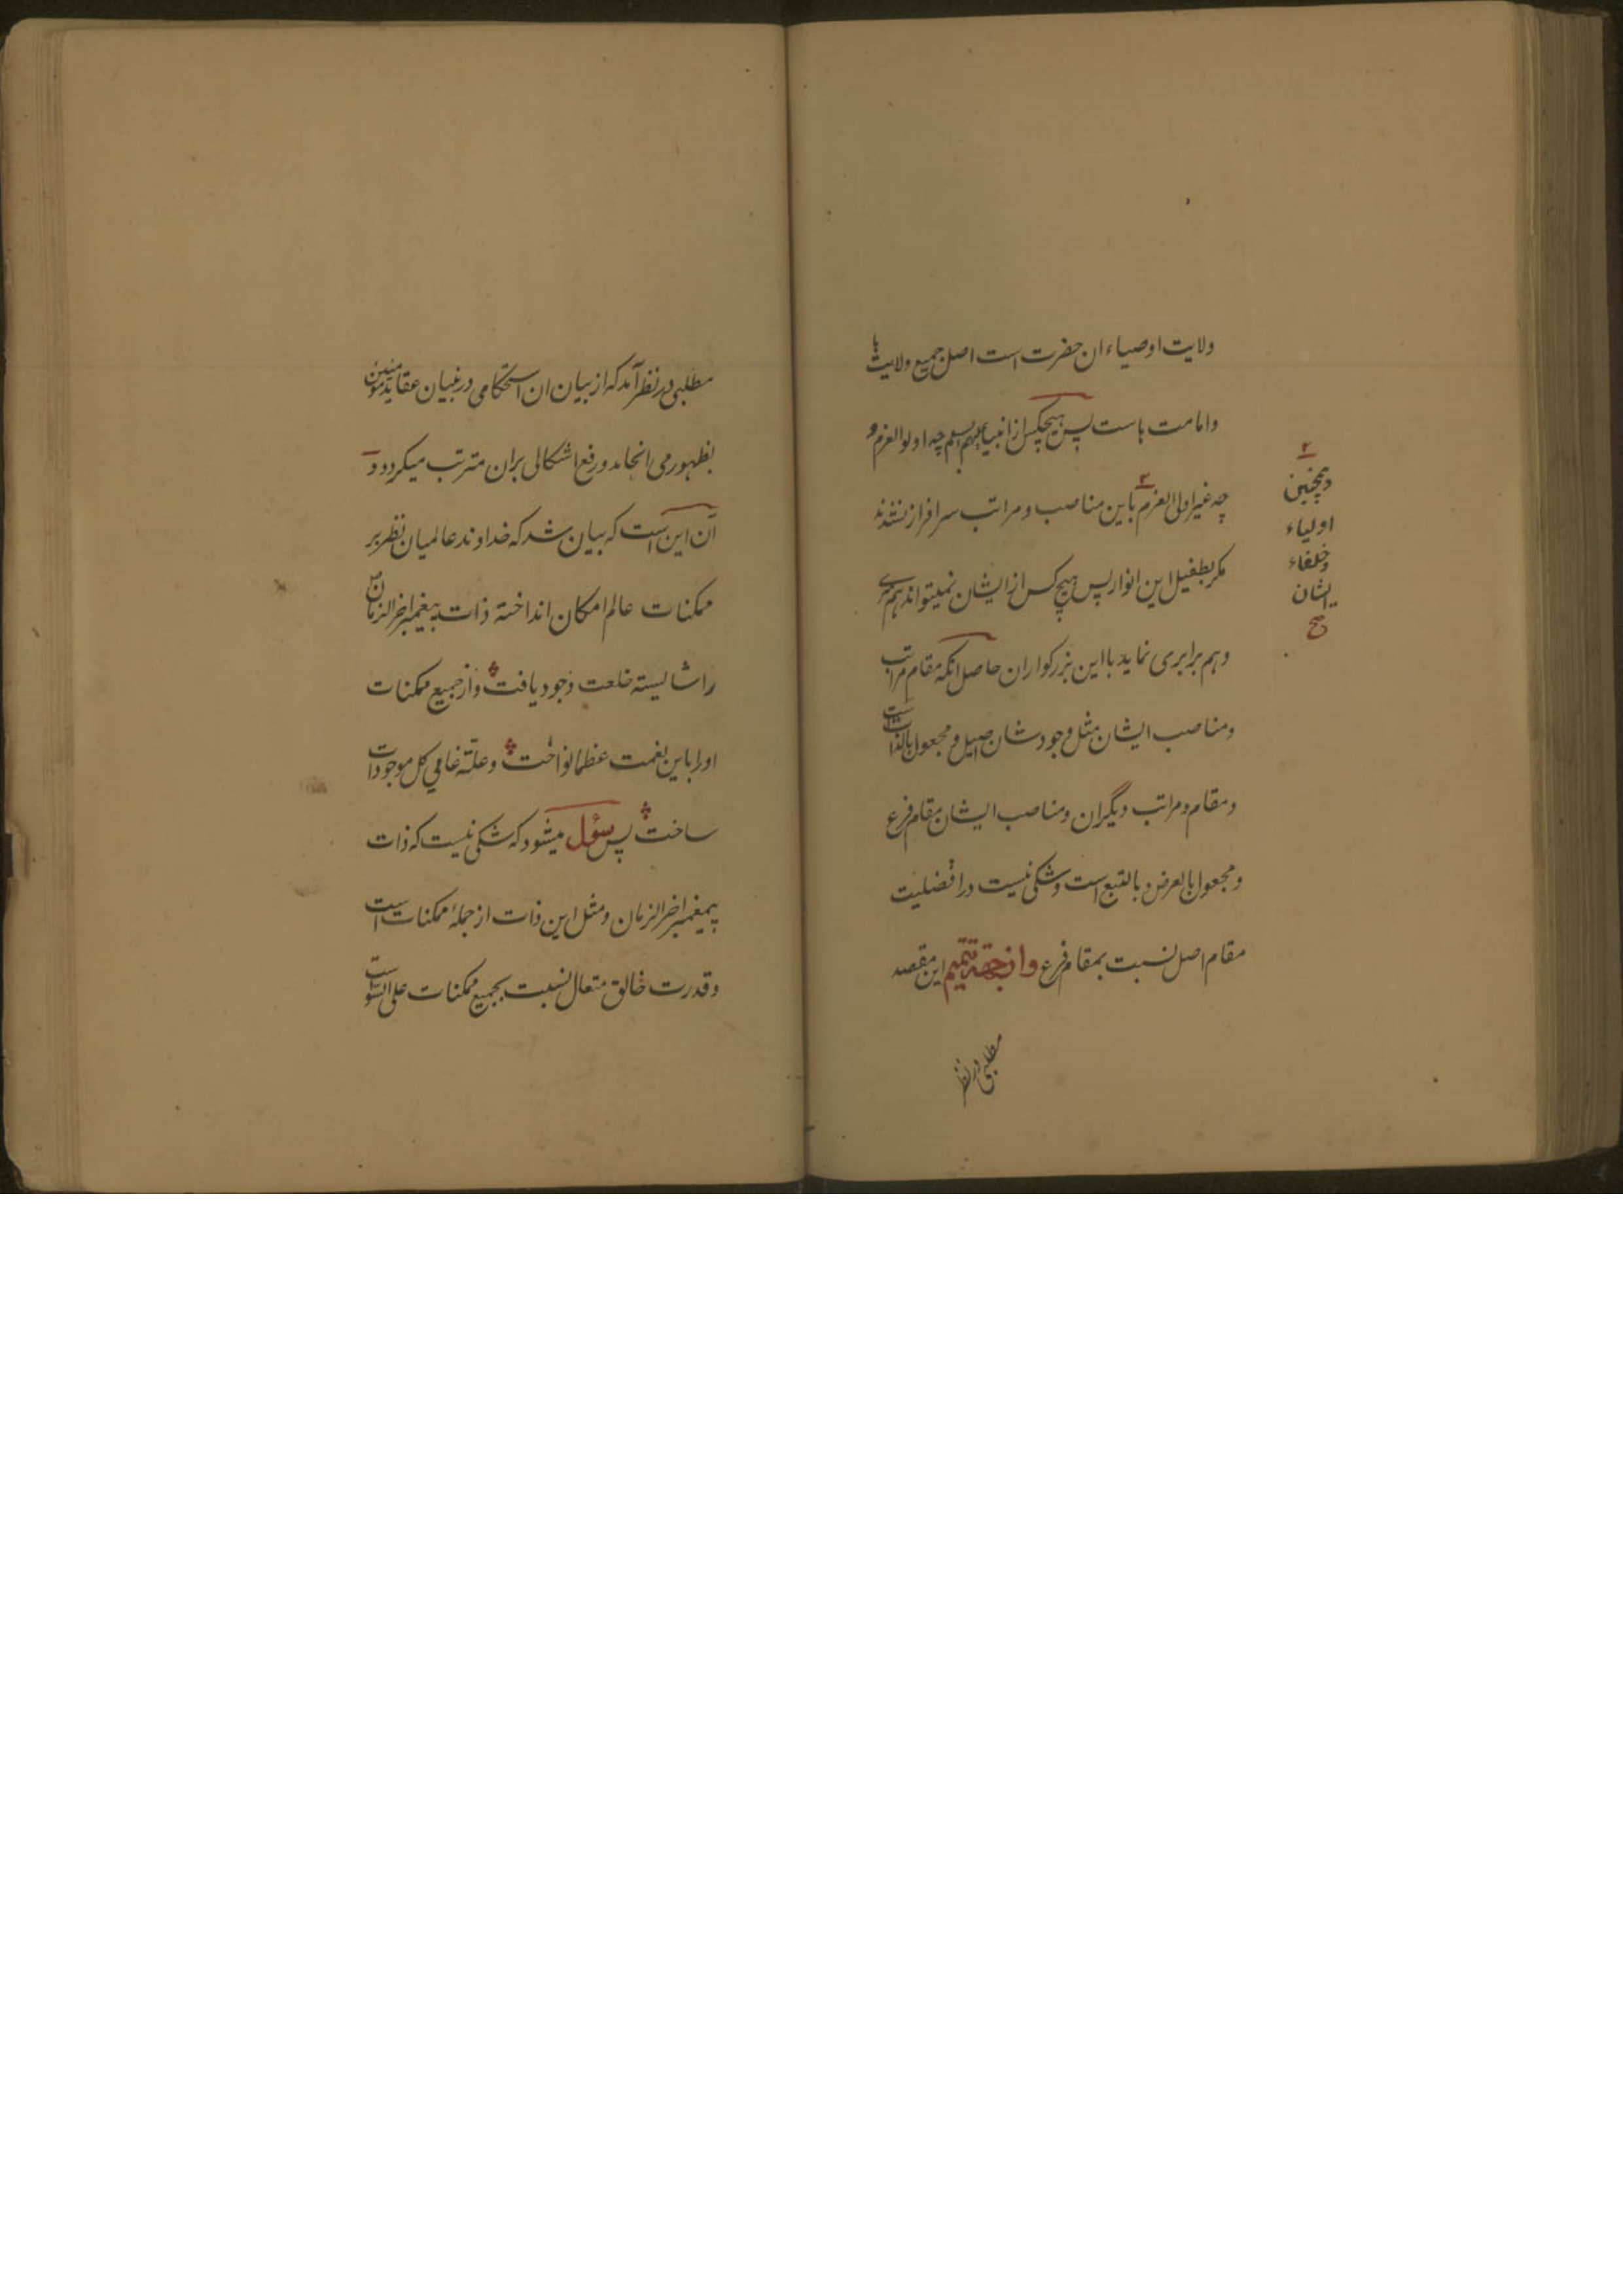 ولایت اوصیاء ان حضرت است اصل جمیع ولایت ها
وامامت هاست پس هیچکس از انبیا علیهم السلم چه اولوالعزم و
چه غیر اولی العزم ۲ باین مناصب و مراتب سرافراز نشدند
مکر بطفیل این انوار پس هیچ کس از ایشان نمیتواند هم سری
و هم برابری نماید با این بزرکواران حاصل انکه مقام مراتب
و مناصب ایشان مثل وجودشان اصیل و مجعول بالذات است
و مقام و مراتب دیگران و مناصب ایشان مقام فرع
و مجعول بالعرض و بالتبع است و شکی نیست در افضلیت
مقام اصل نسبت بمقام فرع واز جهة تتمیم این مقصد
مطلبی در نظر
۲
وهمچنین
اولیاء
وخلفاء
ایشان
صح
مطلبی در نظر آمد که از بیان ان استحکامی در بنیان عقاید مؤمنین
بظهور می انجامد و رفع اشکالی بران مترتب میکردد و
آن این است که بیان شد که خداوند عالمیان نظر بر
ممکنات عالم امکان انداخته ذات پیغمبر اخر الزمان ص
را شایسته خلعت وجود یافت و از جمیع ممکنات
اورا باین نعمت عظما نواخت و علته غائی کل موجودات
ساخت پس سؤل میشود که شکی نیست که ذات
پیغمبر اخر الزمان و مثل این ذات از جملهٔ ممکنات است
و قدرت خالق متعال نسبت بجمیع ممکنات علی السواست